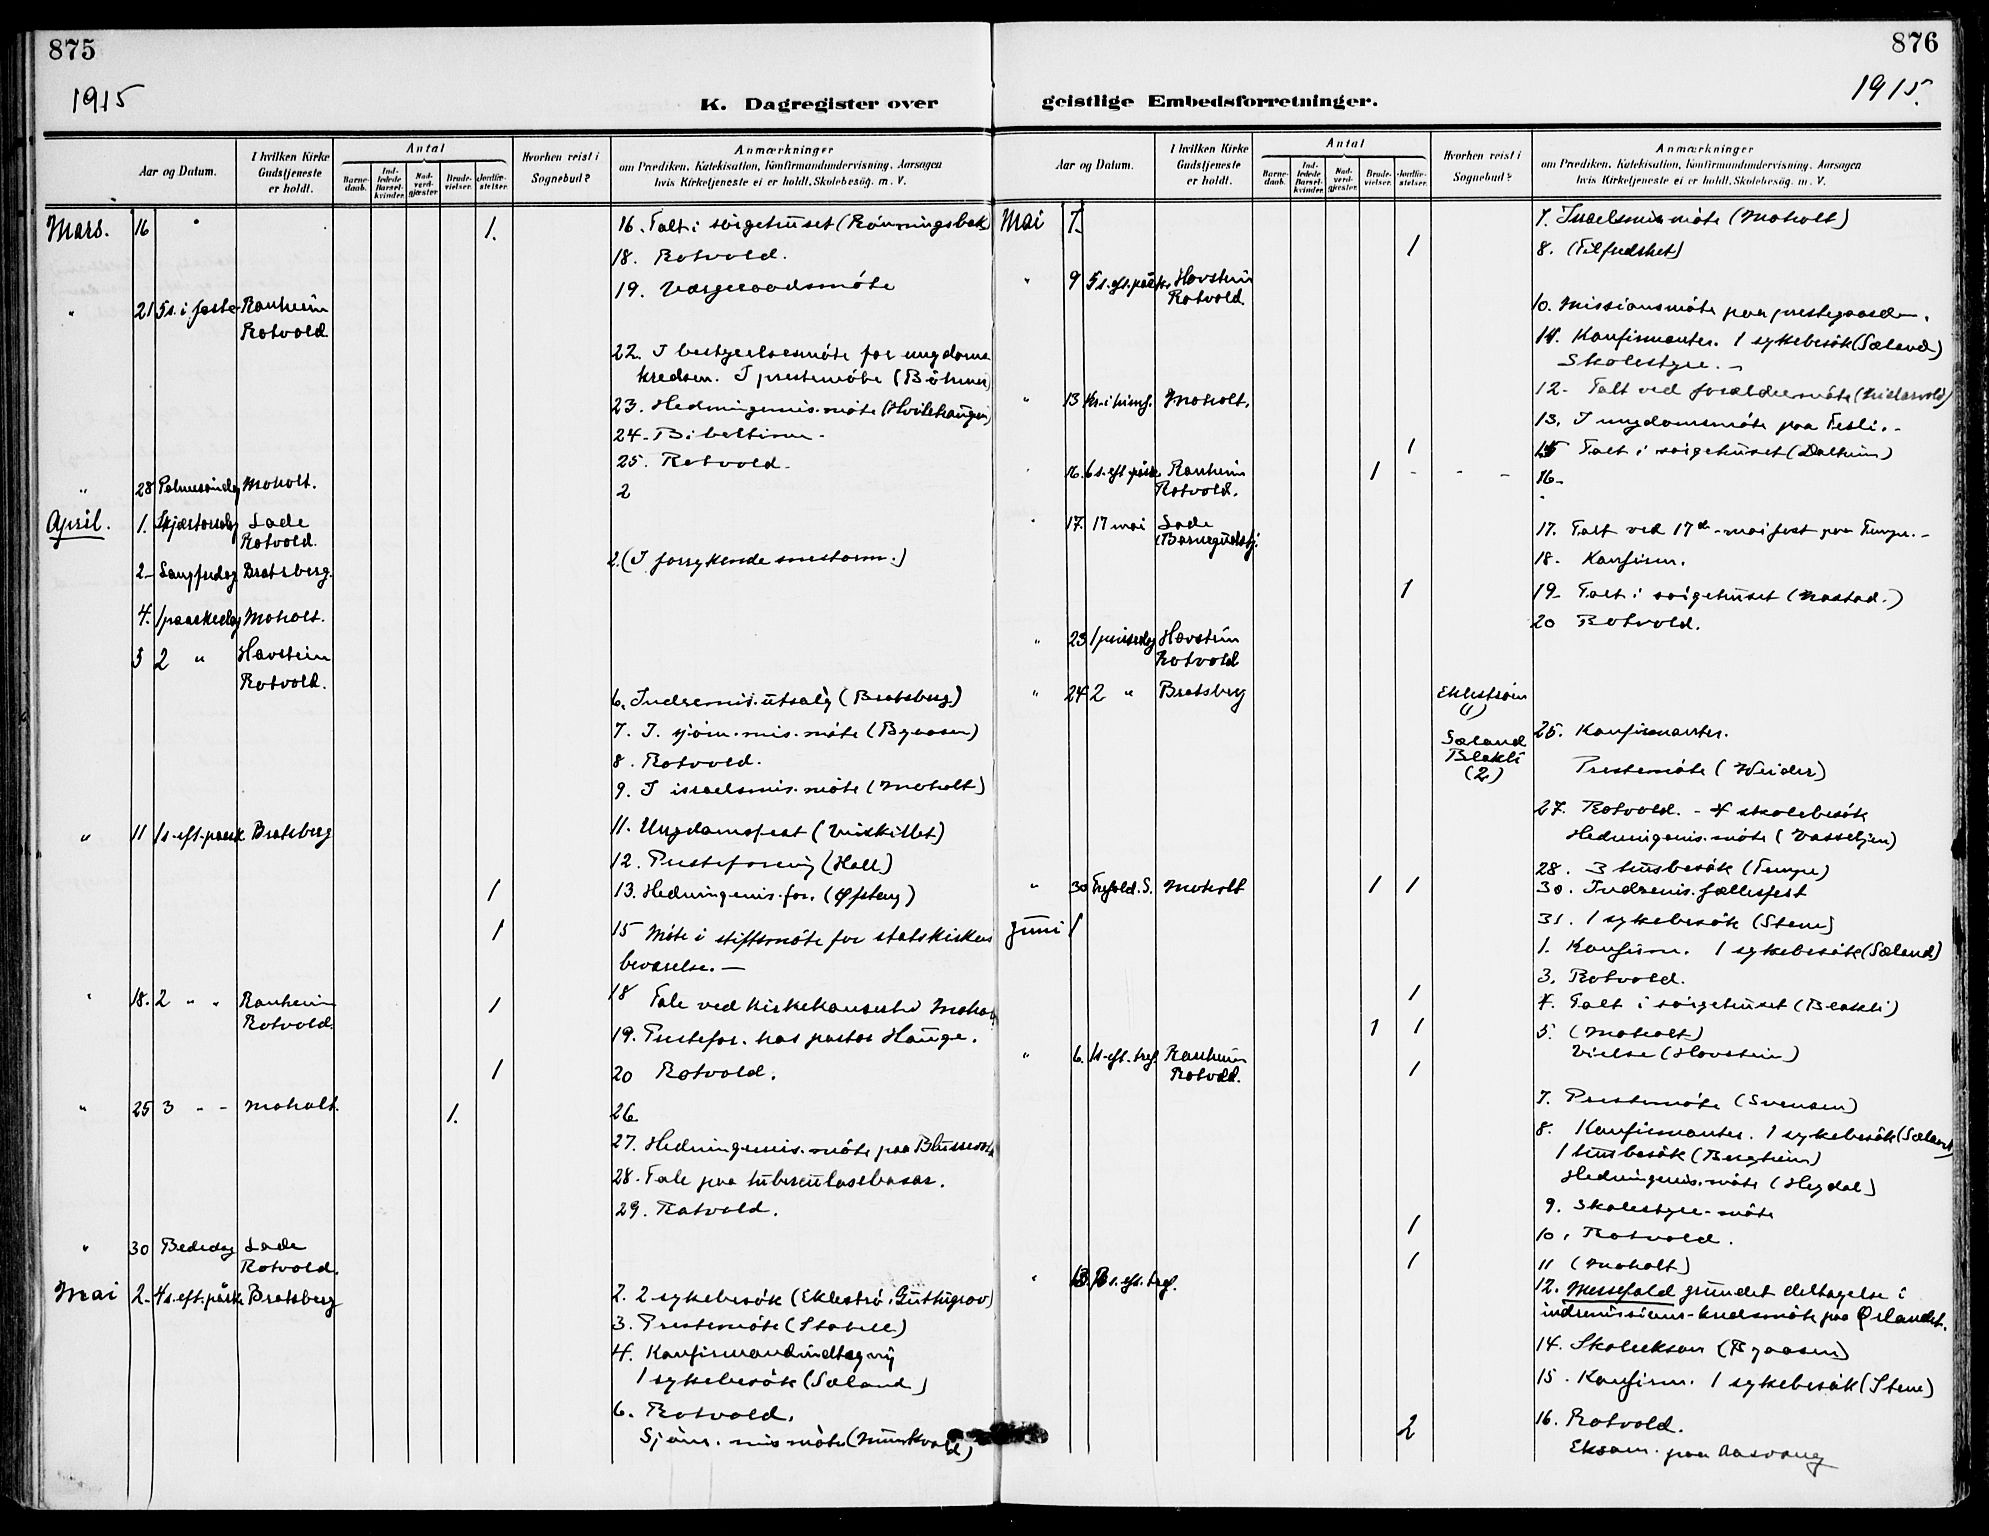 875
1915
K. Dagregister over
Aar og Datum.
I hvilken Kirke Gudstjeneste er holdt.
Antal
Barne-daab.
Ind-ledede Barsel-kvinder.
Nad-verd-gjester.
Brude-vielser.
Jordfæ-stelser.
Hvorhen reist i Sognebud?
Anmærkninger
om Prædiken, Katekisation, Konfirmandundervisning, Aarsagen
hvis Kirketjeneste ei er holdt, Skolebesøg, m. V.
Mars. 16 1. 16. Talt i sörgehuset (Rönningsbak
18. Rotvold.
19. Værgeraadsmöte
" 21 5 s. i faste Ranheim
Rotvold
22. I bestyrelsesmöte for ungdoms
kredsen. I prestemöte (Böhmer)
23. Hedningemis. möte (Hvilehaugen)
24-
25. Rotvold-
" 28 Palmesöndag Moholt. 2
April. 1. Skjærtorsdag Lade
Rotvold.
2. (I forrykende snestorm.)
2- Langfredag Bratsberg.
4. 1 paaskedag Moholt.
5 2 " Havstein
Rotvold.
6. Indremis. utsalg (Bratsberg)
7. I sjöm. mis. möte (Byaasen)
8. Rotvold.
9. I israelsmis. möte (Moholt)
" 11 1 s. eft. paask Bratsberg 11. Ungdomsfest (
12. Presteforening (Hall)
1 13. Hedningemis. for. (
1 15 Möte i stiftsmöte for statskirkens
bevarelse. —
" 18. 2 " " Ranheim
Rotvold.
1 18 Tale ved kirkekonsert i Moholt
19. Prestefor. hos pastor Hauge.
1 20 Rotvold.
" 25 3 - - Moholt. 1. 26.
27. Hedningemis. möte paa
28. Tale paa tuberculosebasar.
29. Rotvold.
" 30 Bededag Lade
Rotvold.
Mai 2. 4 s. eft. påsk Bratsberg 2. 2 sykebesök (Ekleströ,
3. Prestemöte (Stabell)
4. Konfirmandindtagning
1 sykebesök (Sæland)
6. Rotvold.
Sjöm. mis möte (
876
1915.
geistlige Embedsforretninger.
Aar og Datum.
I hvilken Kirke Gudstjeneste er holdt.
Antal
Barne-daab.
Ind-ledede Barsel-kvinder.
Nad-verd-gjester.
Brude-vielser.
Jordfæ-stelser.
Hvorhen reist i Sognebud?
Anmærkninger
om Prædiken, Katekisation, Konfirmandundervisning, Aarsagen
hvis Kirketjeneste ei er holdt, Skolebesög, m. V.
Mai 7. 7. Israelsmis möte (Moholt)
1 8. (Tilfredshet)
" 9 5 s. eft. påske Havstein
Rotvold.
10. Missionsmöte paa prestegaarden.
11. Konfirmanter. 1 sykebesök (Sæland)
Skolestyre. -
12- Talt ved forældremöte (
" 13 Kr. i himf. Moholt. 13. I ungdomsmöte paa Tesli. -
1 15 Talt i sörgehuset (Dalheim)
" 16. 6 s. eft påske Ranheim
Rotvold.
1 - - - 16-
" 17. 17 mai Lade
(Barnegudstj.
17. Talt ved 17de mai fest paa Tempe. -
18. Konfirm.
1 19- Talt i sörgehuset (
20 Rotvold.
" 23 1 pinsedag Havstein
Rotvold
" 24 2 " Bratsberg Eklestrøm
(1)
Sæland
Blakli
(2)
25. Konfirmanter.
Prestemöte (Weider)
27. Rotvold. - 4 skolebesök
Hedningemis. möte (Vasseljen)
28. 3 husbesök (Tempe)
" 30 Trefold. S. Moholt 1 1 30. Indremis. fællesfest
31. 1 sykebesök (Stene)
Juni 1 1. Konfirm. 1 sykebesök (Sæland)
3. Rotvold.
1 4. Talt i sörgehuset (Blakli)
1 1 5. (Moholt)
Vielse (Havstein)
" 6. 1 s. eft. tref. Ranheim
Rotvold.
1
7. Prestemöte (Svensen)
8. Konfirmanter. 1 sykebesök (Sæland)
1 husbesök (Bergheim)
Hedningemis. möte (Hegdal)
9. Skolestyre-möte
1 10. Rotvold.
1 11 (Moholt)
" 13. 2 s. eft. tref. 12. Messefald grundet deltagelse i
indremissions-kredsmöte paa Ørlandet.
14. Skoleeksam (Byaasen)
15. Konfirm. 1 sykebesök (Stene)
2 16. Rotvold.
Eksam. paa Aasvang